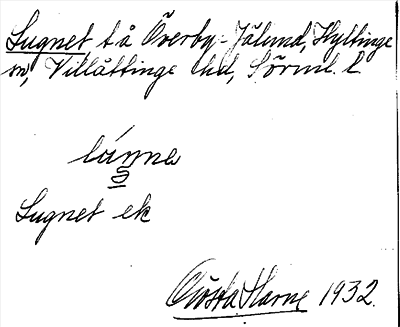 Lugnet t å Överby - Jälund, Hyltinge
sn, Villåttinge hd, Sörml. l.
Lugnet ek
Gösta Harne 1932.